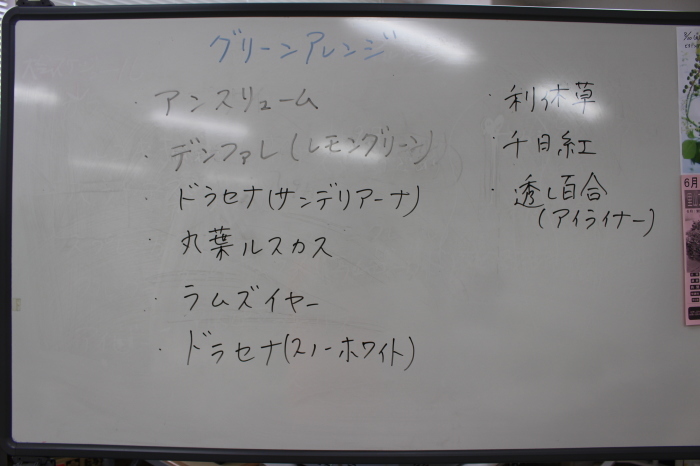 グリーンアレンジ
・アンスリューム
・デンファレ(レモングリーン)
・ドラセナ(サンデリアーナ)
・丸葉ルスカス
・ラムズイヤー
・ドラセナ(スノーホワイト)
・利休草
・千日紅
・透し百合
(アイライナー)
6月